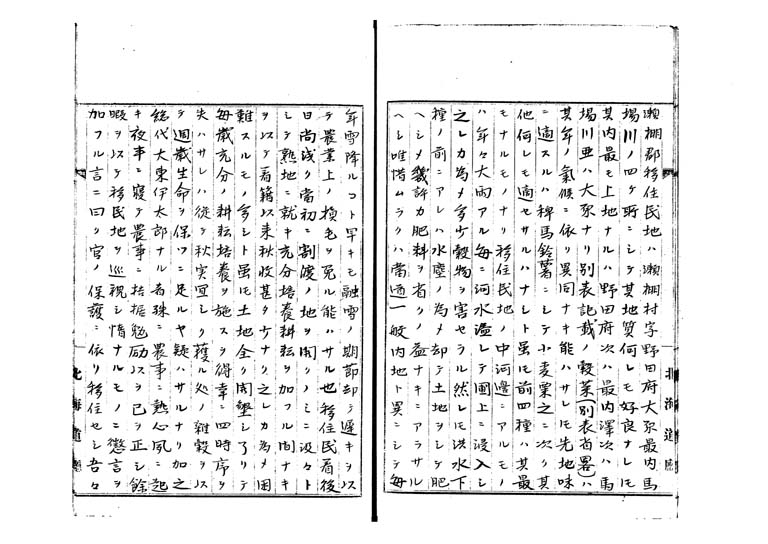 瀬棚郡移住民地ハ瀬棚村字野田府大泵最内馬
場川ノ四ケ所ニシテ其地質何レモ好良ナレモ
其内最モ上地ナルハ野田府次ハ最内澤次ハ馬
場川亜ハ大泵ナリ別表記載ノ穀菜(別表省畧)ハ
其年ノ氣候ニ依リ異同ナキ能ハサレモ先地味
ニ適スルハ稗馬鈴薯ニシテ小麦粟之ニ次キ其
他何レモ適セサルハナシト虽モ前四種ハ其最
モナルモノナリ移住民地ノ中河邊ニアルモノ
ハ年々大雨アル毎ニ河水溢レテ圃上ニ浸入シ
之レカ為メ多少穀物ヲ害セラル然レモ洪水下
種ノ前ニアレハ水塵ノ為メ却テ土地ヲシテ肥
ヘシメ幾許カ肥料ヲ省クノ益ナキニアラサル
ヘシ唯惜ムラクハ當通一般内地ト異ニシテ毎
年雪降ルコト早キモ融雪ノ期節却テ遅キヲ以
テ農業上ノ損毛ヲ免ル能ハサル也移住民着後
日尚浅ク當初ニ割渡ノ地ヲ開クノミニ汲々ト
シテ熟地ニ就キ充分培養耕耘ヲ加フル間ナキ
ヲ以テ着籍以来秋收甚タ少ナリ之レカ為メ困
難スルモノ多シト虽モ土地全ク開墾シ了リテ
毎歳充分ノ耕耘培養ヲ施スヲ得幸ニ四時序ヲ
失ハサレハ従テ秋実冝シク獲ル処ノ雑穀ヲ以
テ週歳生命ヲ保ツニ足ルヤ疑ハサルナリ加之
総代大東伊太郎ナル者殊ニ農事ニ熱心夙ニ起
キ夜事ニ寝テ農事ニ拮据勉励以テ己ヲ正シ餘
暇ヲ以テ移民地ヲ巡視シ惰ナルモノニ懲言ヲ
加フル言ニ曰ク官ノ保護ニ依リ移住セシ吾々
北海道廳
北海道廳